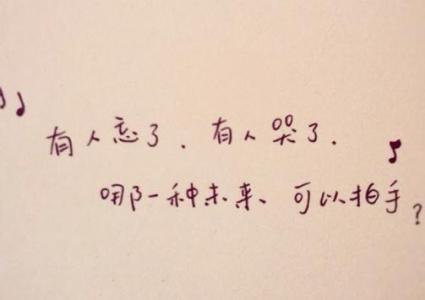 有人忘了．有人哭了．
哪一种未来、可以拍手?